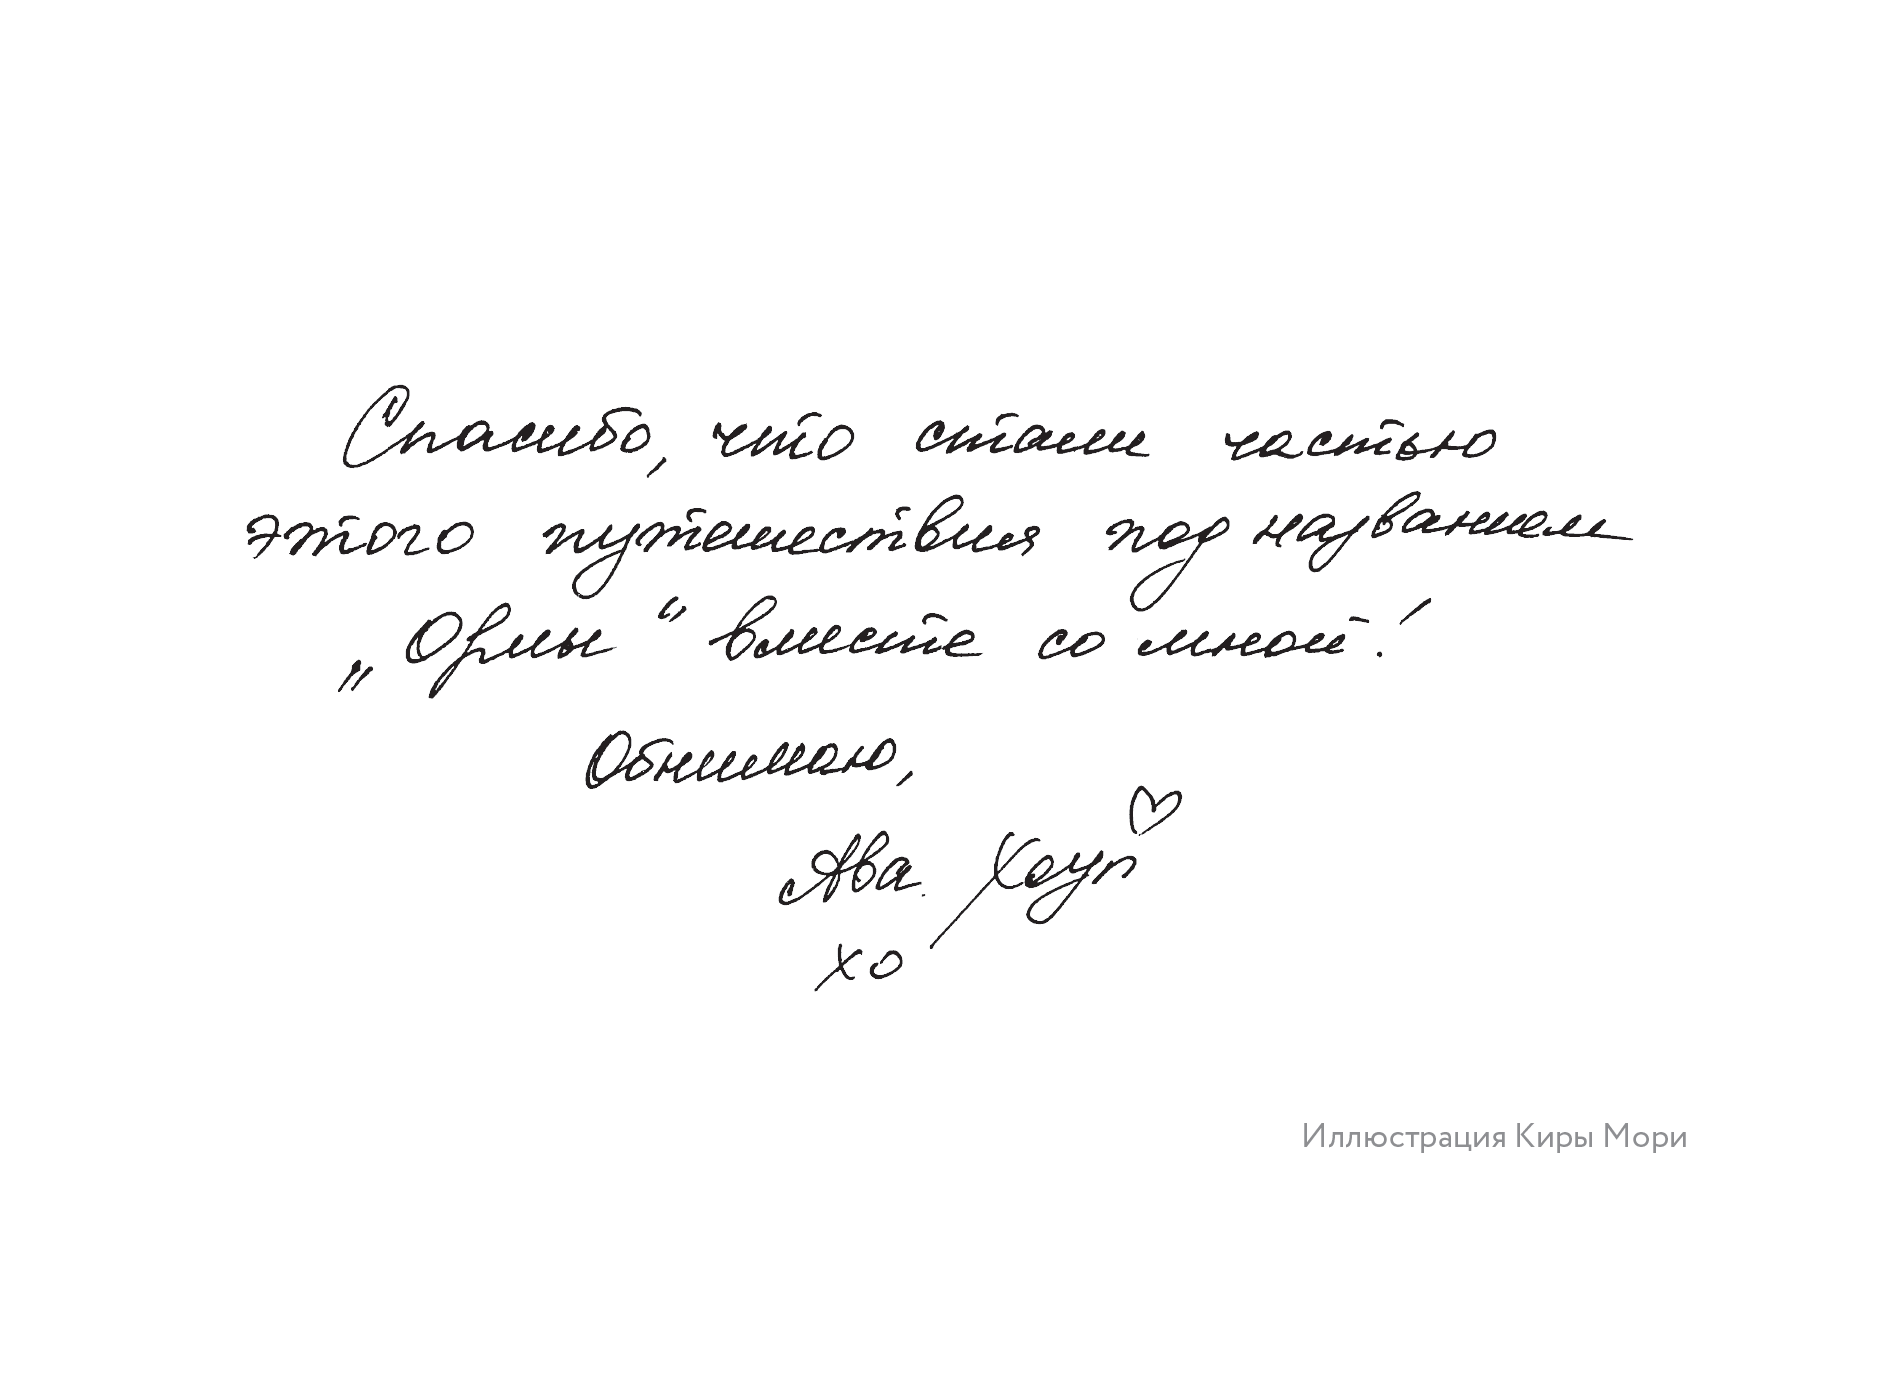 Спасибо, что стали частью
этого путешествия под названием
„Ормы“ вместе со мной!
Обнимаю,
Ава Хоуп
хо
Иллюстрация Киры Мори